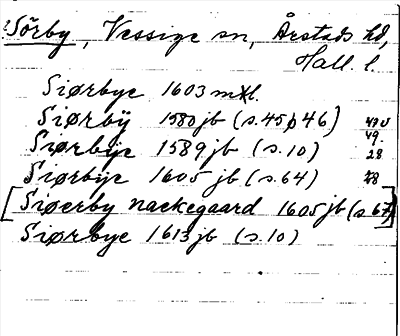 Sörby, Vessige sn, Årstads hd,
Hall. l.
Siørbye 1603 mtl.
Siørbÿ 1580 jb (s. 45 o 46)
Siørbÿe 1589 jb (s. 10)
Siørbye 1605 jb (s. 64)
[Siøerby nackegaard 1605 jb (s. 67)]
Siørbye 1613 jb (s. 10)